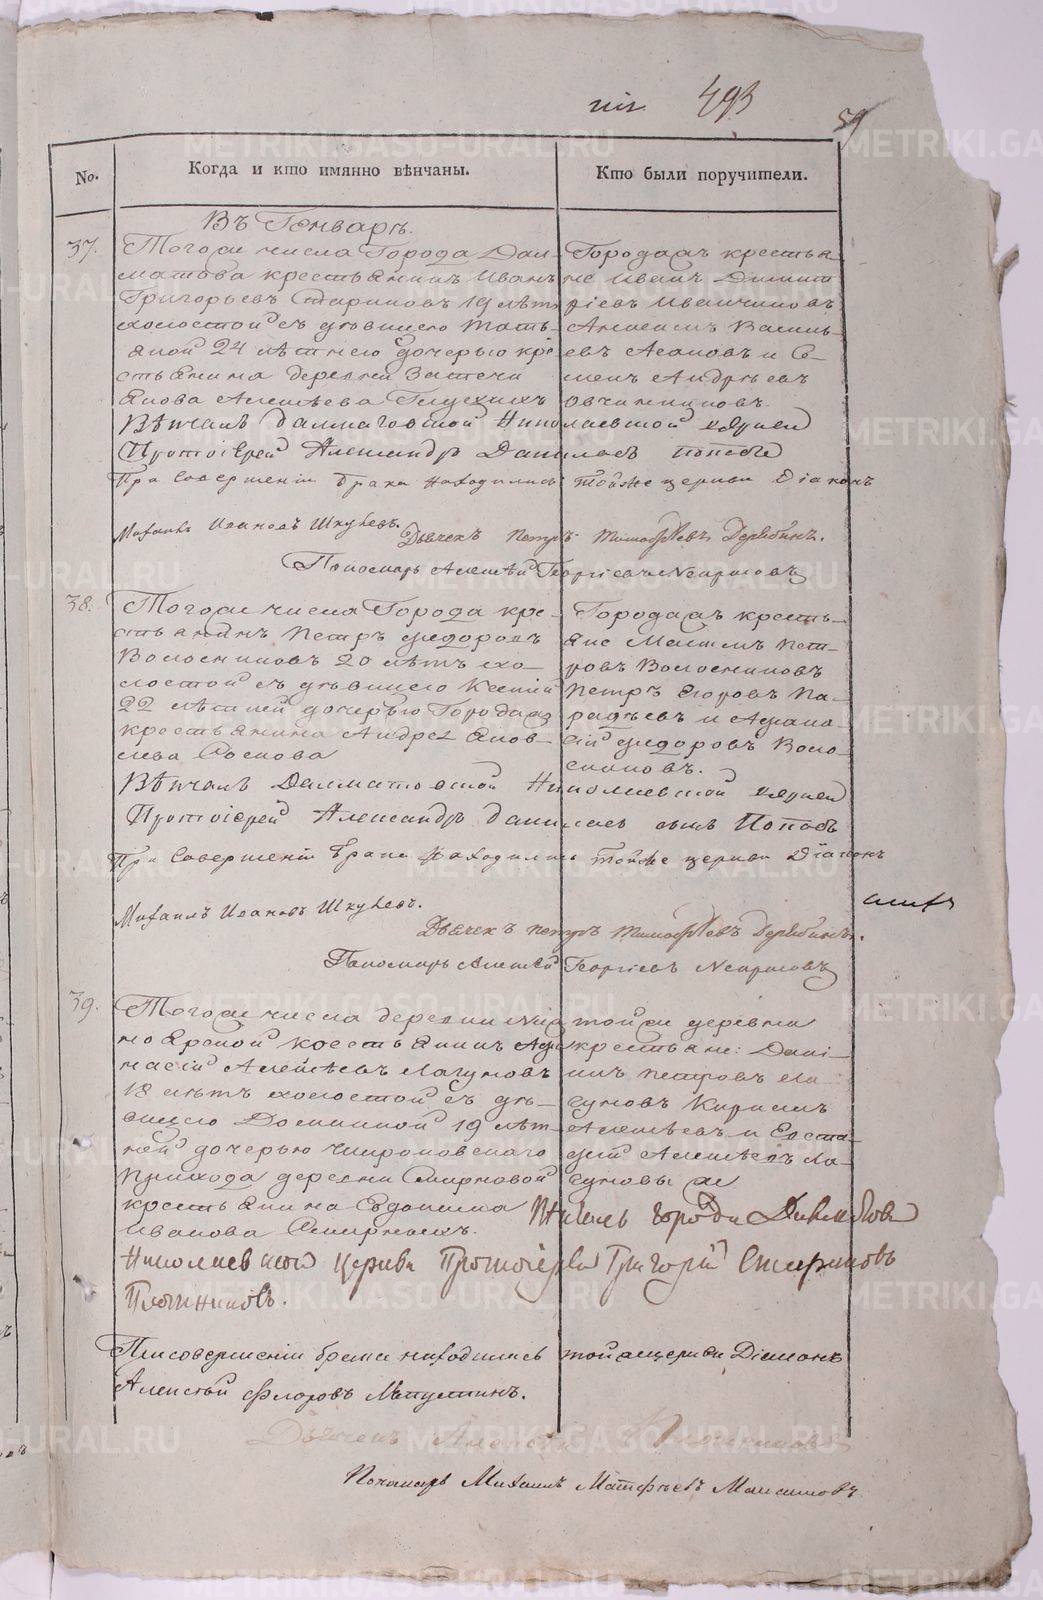 493
54
No.
Когда и кто имянно вѣнчаны.
Кто были поручители.
Въ Генварѣ.
37.
Тогоже числа Города Дал-
матова крестьянинъ Иванъ
Григорьевъ Стариковъ 19 лѣтъ
холостой съ дѣвицею Тать-
яной 24 лѣтнею дочерью кре
стьянина деревни Затечи
Якова Алексѣева Глухихъ
Городажъ крестья
не Иванъ Димит
ріевъ Иванчиковъ
Алексѣй Василь-
евъ Асановъ и Се-
менъ Андреевъ
Овчинниковъ.
Вѣнчалъ Далматовской Николаевской церкви
Протоіерей Александръ Даниловъ Поповъ
При совершеніи брака находились тойже церкви Діаконъ
Михаилъ Ивановъ Шкулевъ.
Дьячекъ Петръ Тимофѣевъ Дерябинъ.
Пономарь Алексѣй Георгіевъ Некрасовъ
38.
Тогоже числа Города кре-
стьянинъ Петръ Федоровъ
Волосниковъ 20 лѣтъ хо-
лостой съ дѣвицею Ксеніей
22 лѣтней дочерью Городаж
крестьянина Андрея Яков-
лева Соснова
Городажъ кресть-
яне Максимъ Пет-
ровъ Волосниковъ
Петръ Егоровъ Па-
радѣевъ и Афана-
сій Федоровъ Воло-
сниковъ.
Вѣнчалъ Далматовской Николаевской церкви
Протоіерей Александръ Даниловъ сынъ Поповъ
При совершеніи брака находились тойже церкви Діаконъ
Михаилъ Ивановъ Шкулевъ.
Дьячекъ Петръ Тимофѣевъ Дерябинъ.
Пономарь Алексѣй Георгіевъ Некрасовъ
39.
Тогоже числа деревни
крестьянинъ Афа
насій Алексѣевъ Лагуновъ
18 лѣтъ холостой съ дѣ-
вицею Домникой 19 лѣт-
ней дочерью Широковскаго
прихода деревни Смирновой
крестьянина Евдокима
Иванова Смирныхъ.
тойже деревни
крестьяне: Дані-
илъ Петровъ Ла-
гуновъ Кирилъ
Алексѣевъ и Евста-
фій Алексѣевъ Ла-
гуновы же
Вѣнчалъ города Далматова
Николаевской церкви Протоіерей Григорій
Плотниковъ.
При совершеніи брака находились тойже церкви Діаконъ
Алексѣй Флоровъ
Дьячекъ Алексѣй
Пономарь Михаилъ Матфѣевъ Максимовъ
METRIKI.GASO-URAL.RU